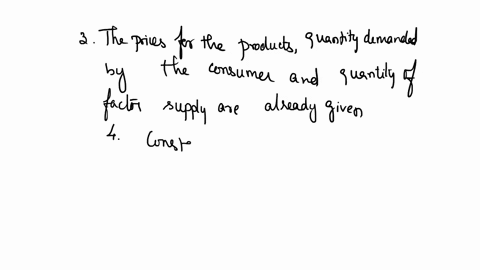 3. The prices for the products, quantity demanded
by the consumer and quantity of
factor supply are already given
4. Const